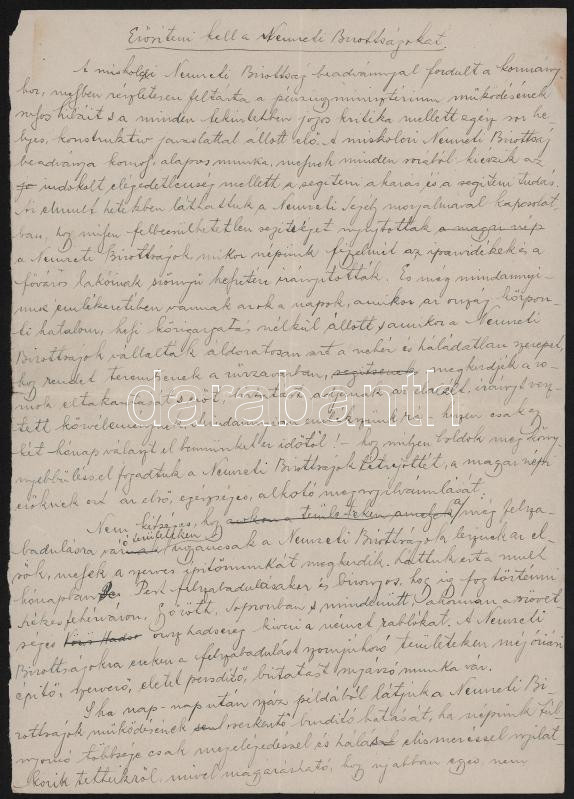 Erősíteni kell a Nemzeti Bizottságokat.
A miskolci Nemzeti Bizottság beadvánnyal fordult a kormány-
hoz, melyben részletesen feltárta a pénzügyminisztérium működésének
súlyos hibáit s a minden tekintetben jogos kritika mellett egész sor he-
lyes, konstruktiv javaslattal állott elő. A miskolci Nemzeti Bizottság
beadványa komoly, alapos munka, melynek minden sorából kicsúszik az
indokolt elégedetlenség mellett a segíteni akarás és a segíteni tudás.
Az elmult hetekben láthattuk a Nemzeti Segély mozgalmával kapcsolat-
ban, hogy milyen felbecsülhetetlen segítséget nyujtottak a magyar nép
a Nemzeti Bizottságok mikor népünk figyelmét az iparvidékek és a
főváros lakóinak szörnyű helyzetére irányították. És még mindannyi-
unk emlékezetében vannak azok a napok, amikor az ország közpon-
ti hatalom, helyi közigazgatás nélkül állott s amikor a Nemzeti
Bizottságok vállalták áldozatosan azt a nehéz és háládatlan szerepet,
hogy rendet teremtsenek a zűrzavarban, segítsenek megkezdjék a ro-
mok eltakarítását, hivatást adjanak az elalélt, irányt vesz-
tett közvéleménynek. Mindannyian emlékszünk rá – hiszen csak egy-
két hónap választ el bennünket ez időtől! – hogy milyen boldog megköny-
nyebbüléssel fogadtuk a Nemzeti Bizottságok létrejöttét, a magyar népi
erőknek ezt az első, egészséges, alkotó megnyilvánulását.
Nem kétséges, hogy azokon a területeken, amelyek a még felsza-
badulásra váró területeken is ugyancsak a Nemzeti Bizottságok lesznek az el-
sők, melyek a szerves építőmunkát megkezdik. Láttuk ezt a mult
hónapban Pest felszabadulásakor és bizonyos, hogy így fog történni
Székesfehérvárott, Győrött, Sopronban s mindenütt, ahonnan a szövet-
séges Vörös Hadser orosz hadsereg kiveri a német rablókat. A Nemzeti
Bizottságokra ezeken a felszabadulást szomjuhozó területeken még óriási
építő, szervező, életet pezsdítő, biztatást nyujtó munka vár.
S ha nap-nap után száz példából látjuk a Nemzeti Bi-
zottságok működésének serkentő, buzdító hatását, ha népünk túl-
nyomó többsége csak megelégedéssel és hálás elismeréssel nyilat-
kozik tetteikről, mivel magyarázható, hogy ujabban egyes, nem
www.darabanth.com